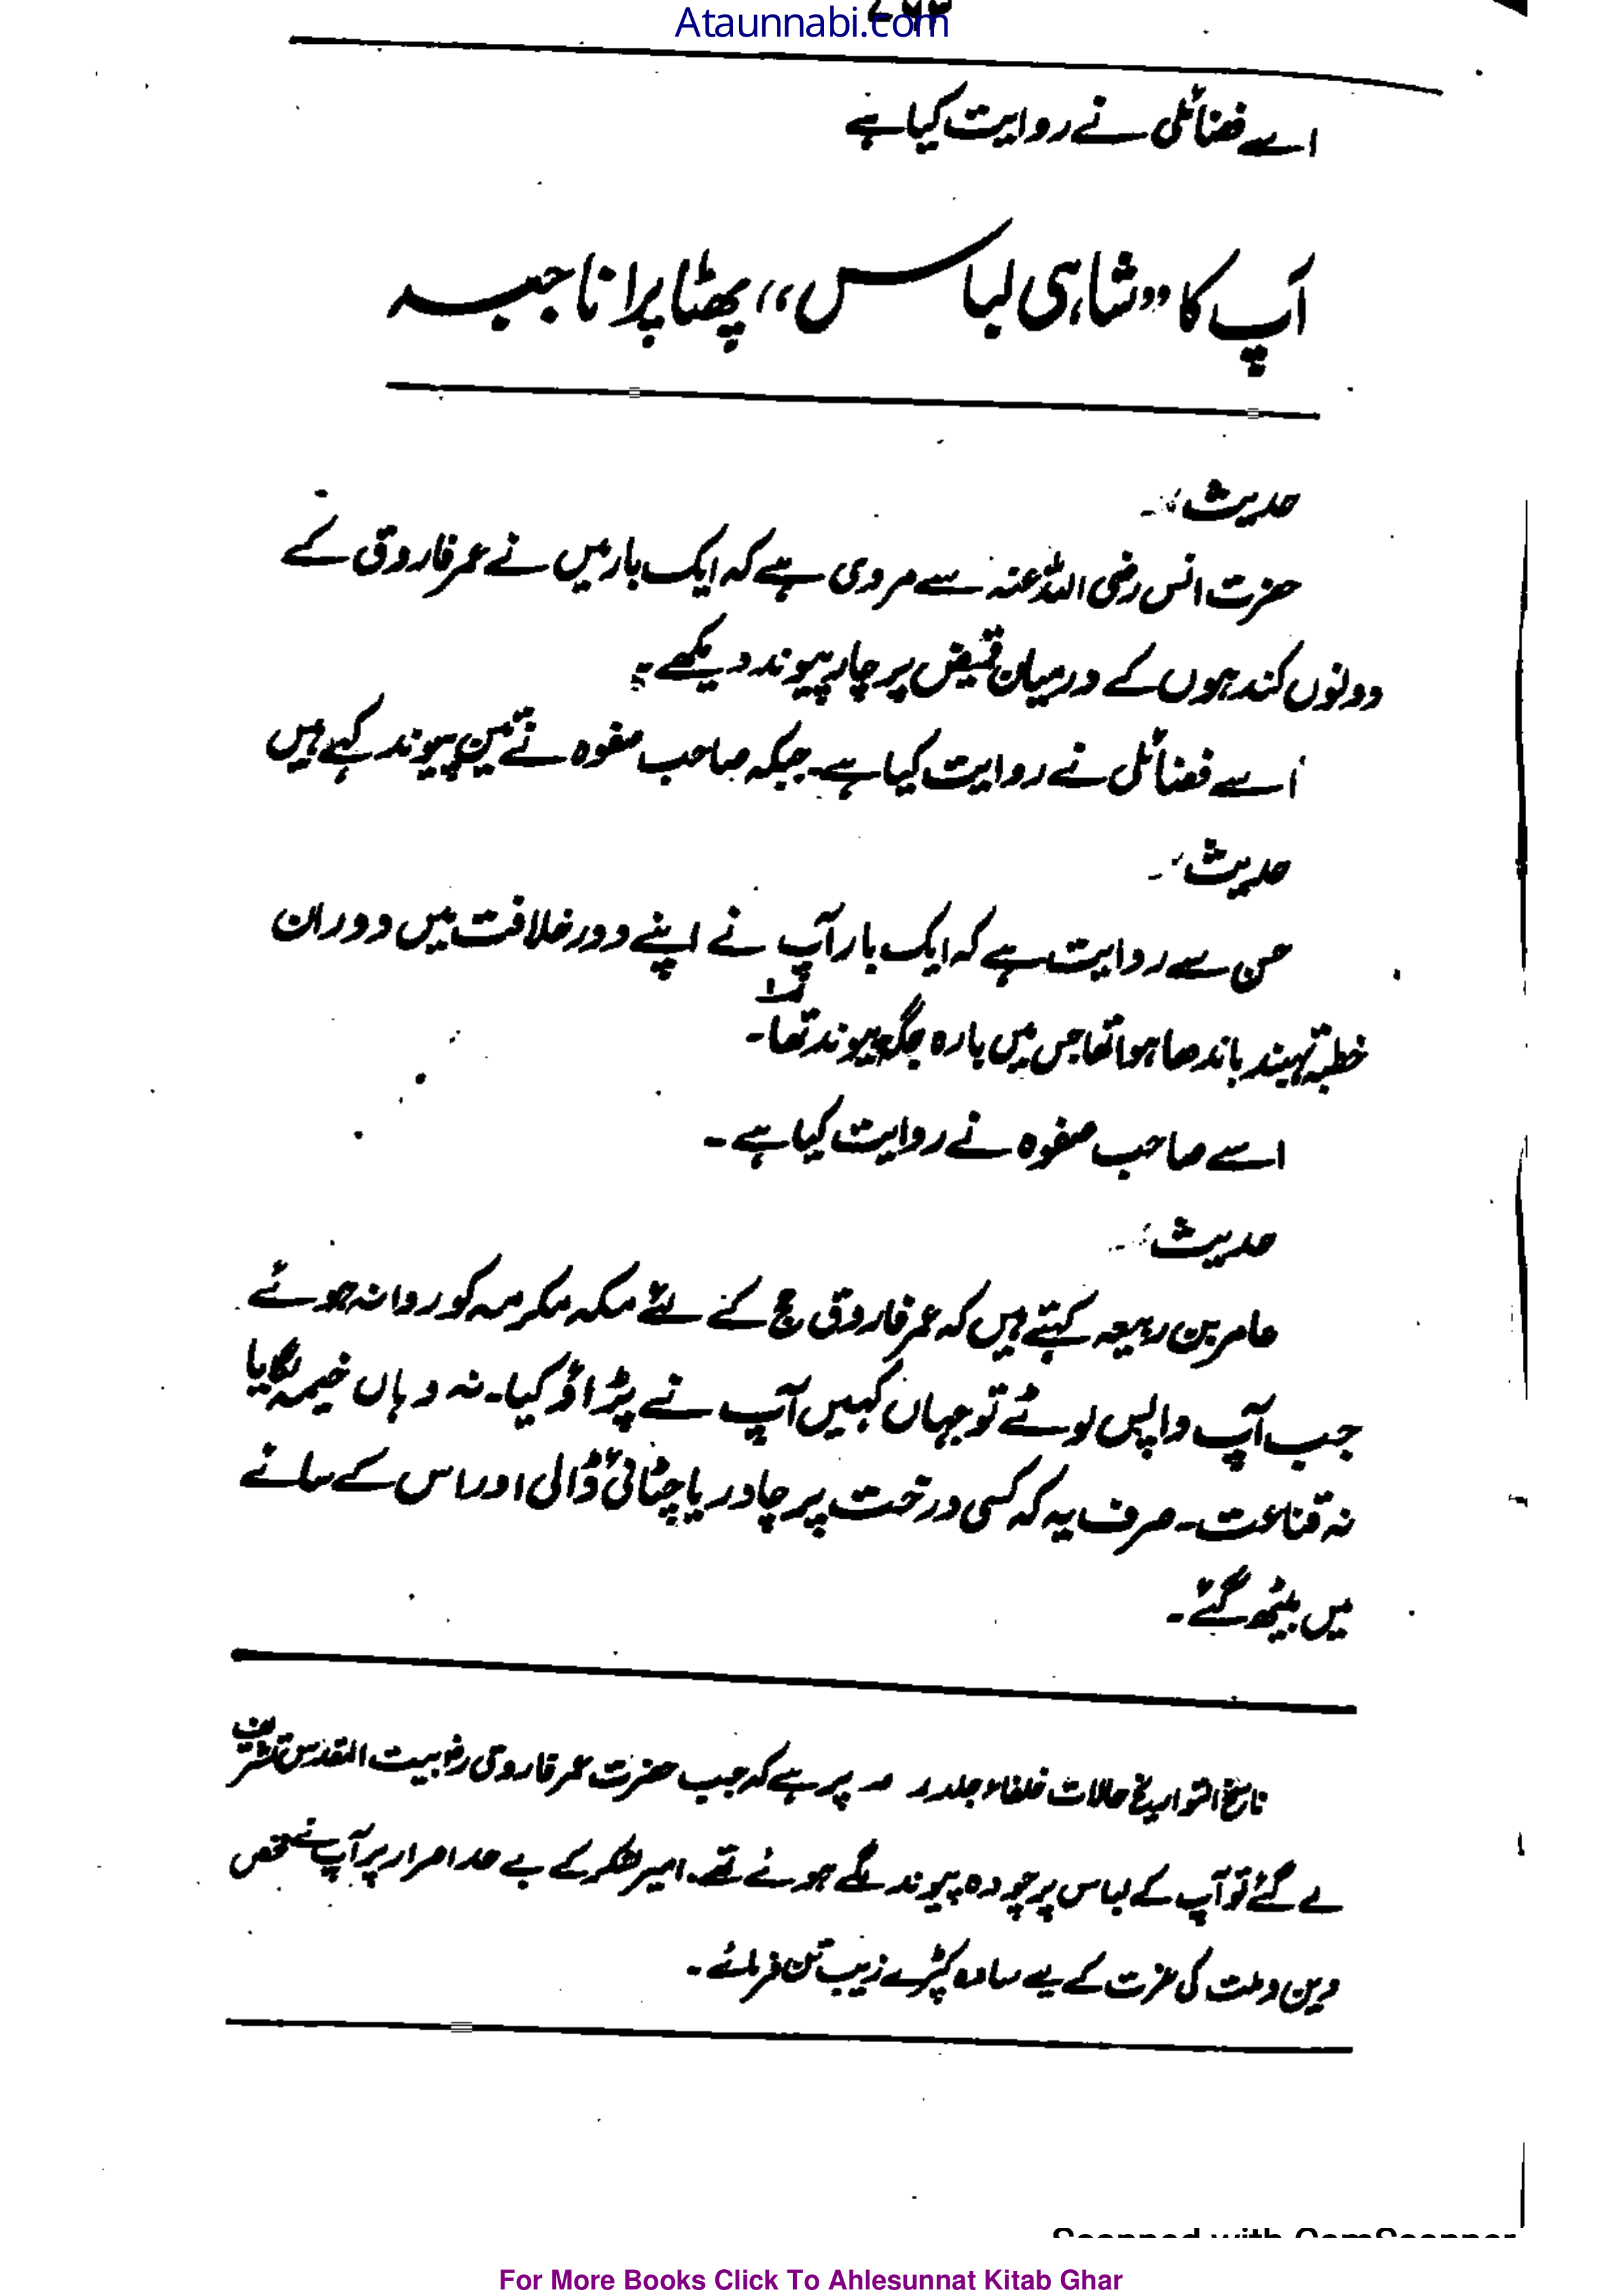 Ataunnabi.com
اسے فضائلی نے روایت کیا ہے
آپ کا ”شاہی لباس“ پھٹا پرانا جبہ
حدیث :-
حضرت انس رضی اللہ عنہ سے مروی ہے کہ ایک بار میں نے عمر فاروق کے
دونوں کندھوں کے درمیان قمیض پر چار پیوند دیکھے ۔
اُسے فضائلی نے روایت کیا ہے۔ جبکہ صاحب صفوہ نے تین پیوند کہے ہیں
حدیث :-
حسن سے روایت ہے کہ ایک بار آپ نے اپنے دور خلافت میں دوران
خطبہ تہبند باندھا ہوا تھا جس میں بارہ جگہ پیوند تھا۔
اسے صاحب صفوہ نے روایت کیا ہے ۔
حدیث :-
عامر بن ربیعہ کہتے ہیں کہ عمر فاروق حج کے لئے مکہ مکرمہ کو روانہ ہوئے
جب آپ واپس لوٹے تو جہاں کہیں آپ نے پڑاؤ کیا۔ نہ وہاں خیمہ لگایا
نہ قناعت۔ صرف یہ کہ کسی درخت پر چادر یا چٹائی ڈالی اور اس کے سائے
میں بیٹھ گئے ۔
ناسخ التواریخ حالات خلفاء جلد پر ہے کہ جب حضرت عمر فاروق رض بیت المقدس تشریف
لے گئے تو آپ کے لباس پر چودہ پیوند لگے ہوئے تھے۔ امیر لشکر کے بے حد اصرار پر آپ نے محض
دین و ملت کی عزت کے لیے سادہ کپڑے زیب تن فرمائے ۔
Scanned with CamScanner
For More Books Click To Ahlesunnat Kitab Ghar